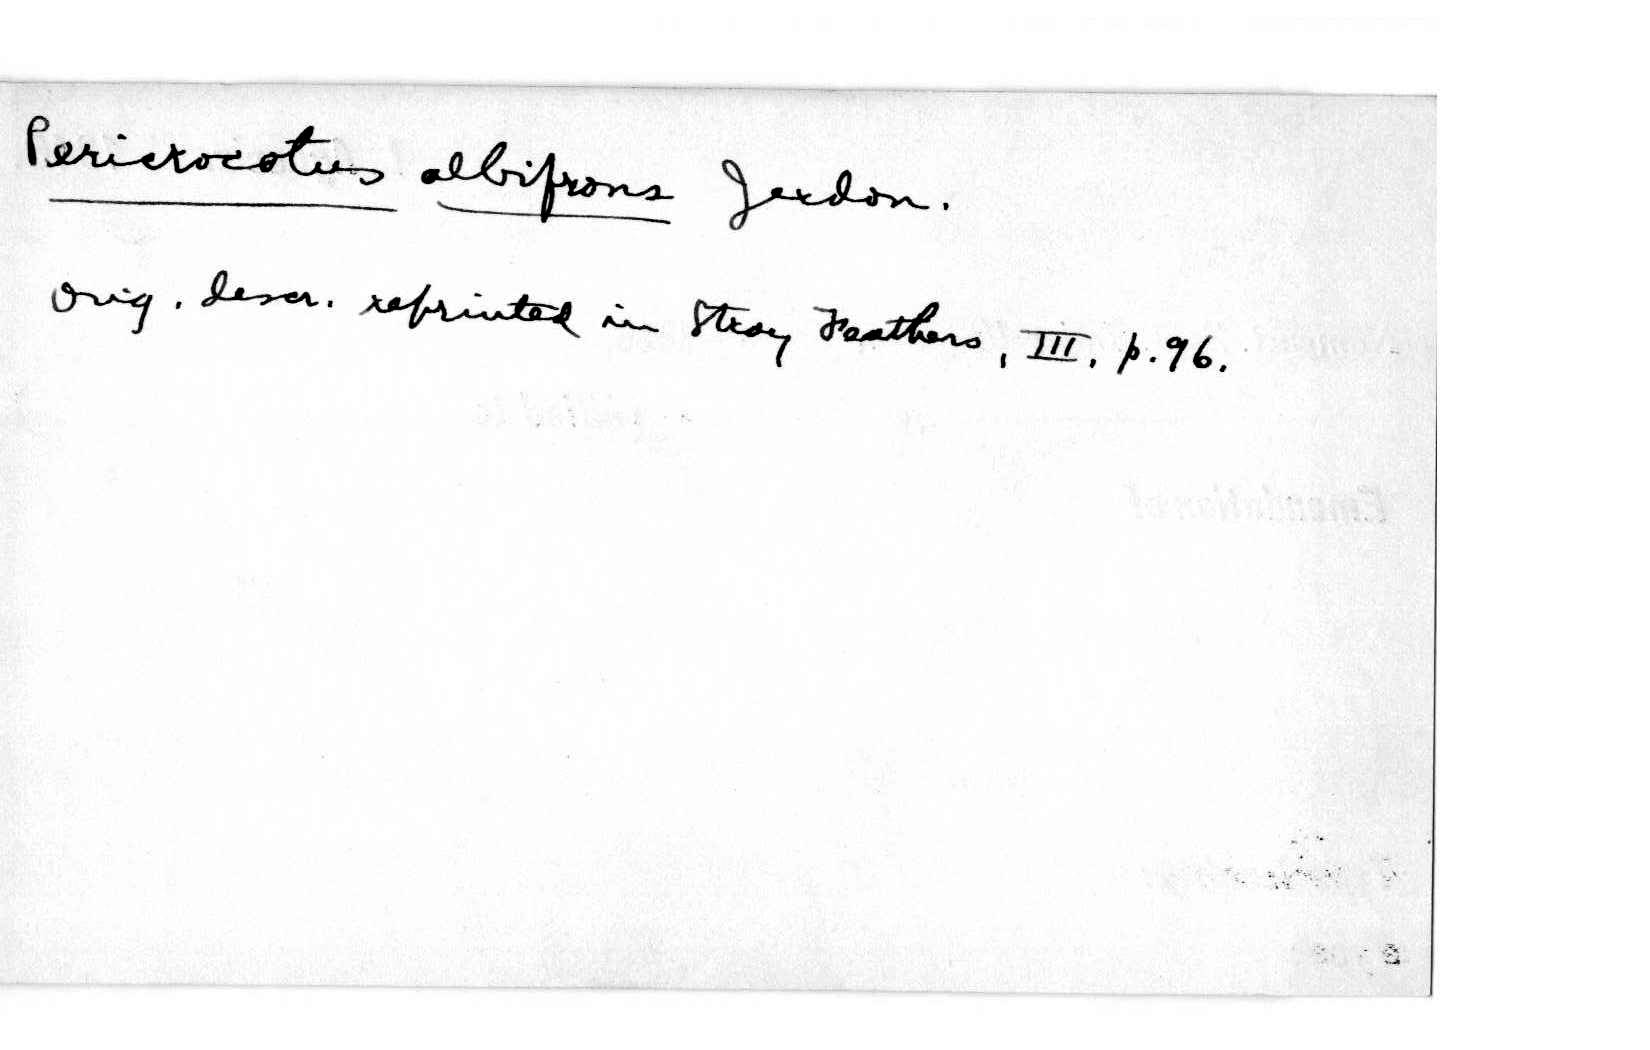 Pericrocotus albifrons Jerdon.
Orig. descr. reprinted in Stray Feathers, III, p.96.